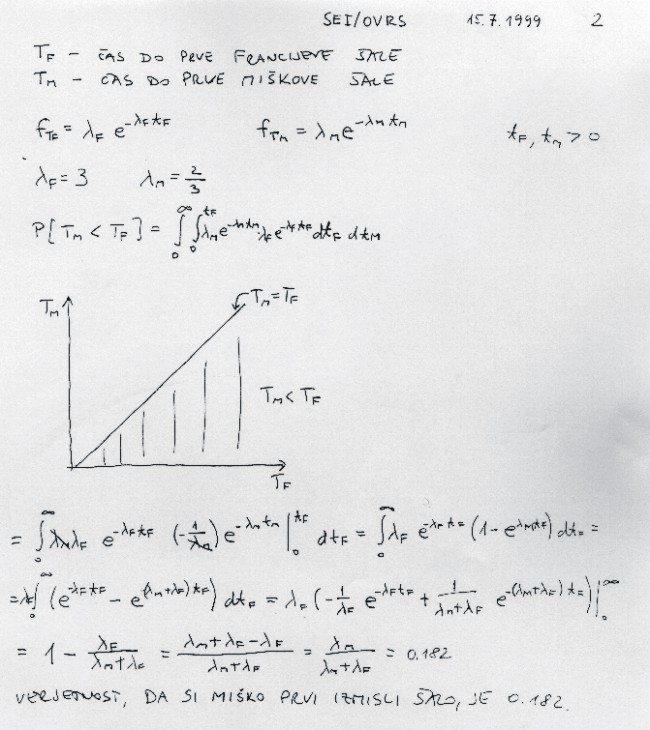 SEI/OVRS 15.7.1999 2
T_F - ČAS DO PRVE FRANCIJEVE ŠALE
T_M - ČAS DO PRVE MIŠKOVE ŠALE
f_{T_F} = λ_F e^{-λ_F t_F} f_{T_M} = λ_M e^{-λ_M t_M} t_F, t_M > 0
λ_F = 3 λ_M = 2/3
P[T_M < T_F] = ∫_0^∞ ∫_0^{t_F} λ_M e^{-λ_M t_M} · λ_F e^{-λ_F t_F} dt_F dt_M
T_M T_M = T_F
T_M < T_F
T_F
= ∫_0^∞ λ_M λ_F e^{-λ_F t_F} (-1/λ_M) e^{-λ_M t_M} |_0^{t_F} dt_F = ∫_0^∞ λ_F e^{-λ_F t_F} (1 - e^{λ_M t_F}) dt_F =
= λ_F ∫_0^∞ (e^{-λ_F t_F} - e^{(λ_M+λ_F) t_F}) dt_F = λ_F (-1/λ_F e^{-λ_F t_F} + 1/(λ_M+λ_F) e^{-(λ_M+λ_F) t_F}) |_0^∞
= 1 - λ_F/(λ_M+λ_F) = (λ_M+λ_F-λ_F)/(λ_M+λ_F) = λ_M/(λ_M+λ_F) = 0.182
VERJETNOST, DA SI MIŠKO PRVI IZMISLI ŠALO, JE 0.182.